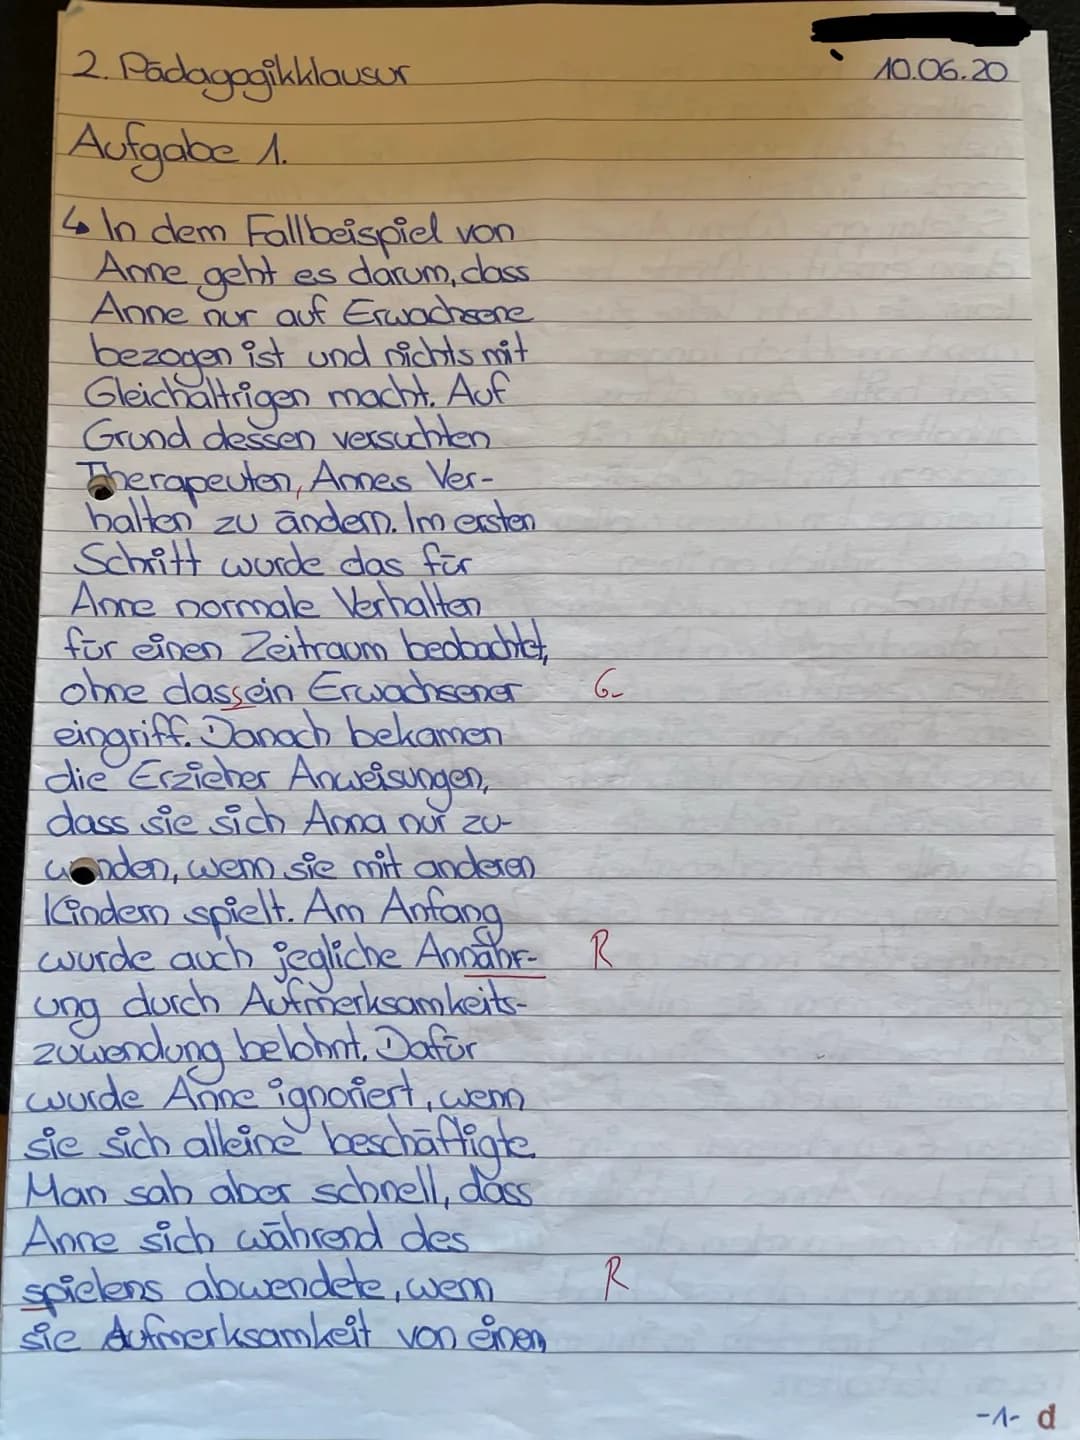 2. Pädagogikklausur
10.06.20
Aufgabe 1.
↳ In dem Fallbeispiel von
Anne geht es darum, dass
Anne nur auf Erwachsene
bezogen ist und nichts mit
Gleichaltrigen macht. Auf
Grund dessen versuchten
Therapeuten, Annes Ver-
halten zu ändern. Im ersten
Schritt wurde das für
Anne normale Verhalten
für einen Zeitraum beobachtet,
ohne dassein Erwachsener G
eingriff. Danach bekamen
die Erzieher Anweisungen,
dass sie sich Anna nur zu-
wenden, wenn sie mit anderen
Kindern spielt. Am Anfang
wurde auch jegliche Annähr- R
ung durch Aufmerksamkeits-
zuwendung belohnt. Dafür
wurde Anne ignoriert, wenn
sie sich alleine beschäftigte.
Man sah aber schnell, dass
Anne sich während des
spielens abwendete, wenn R
sie Aufmerksamkeit von einen
-1- d